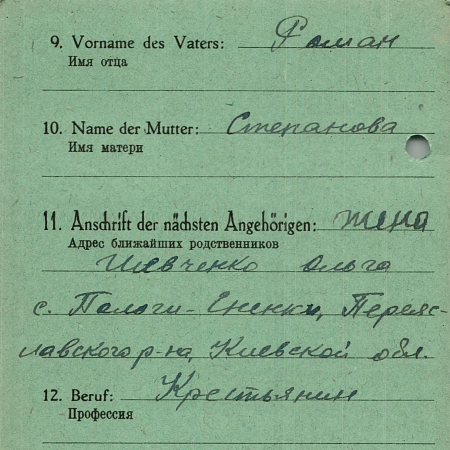 9. Vorname des Vaters: Роман
Имя отца
10. Name der Mutter: Степанова
Имя матери
11. Anschrift der nächsten Angehörigen: жена
Адрес ближайших родственников
Шевченко Ольга
с. Пологи-Яненки, Переяс-
лавского р-на, Киевской обл.
12. Beruf: Крестьянин
Профессия